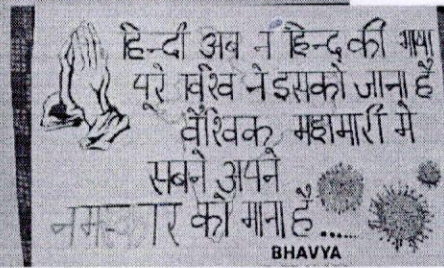 हिन्दी अब न हिन्द की भाषा
पूरे विश्व ने इसको जाना है
वैश्विक महामारी मे
सबने अपने
नमस्कार को माना है......
BHAVYA